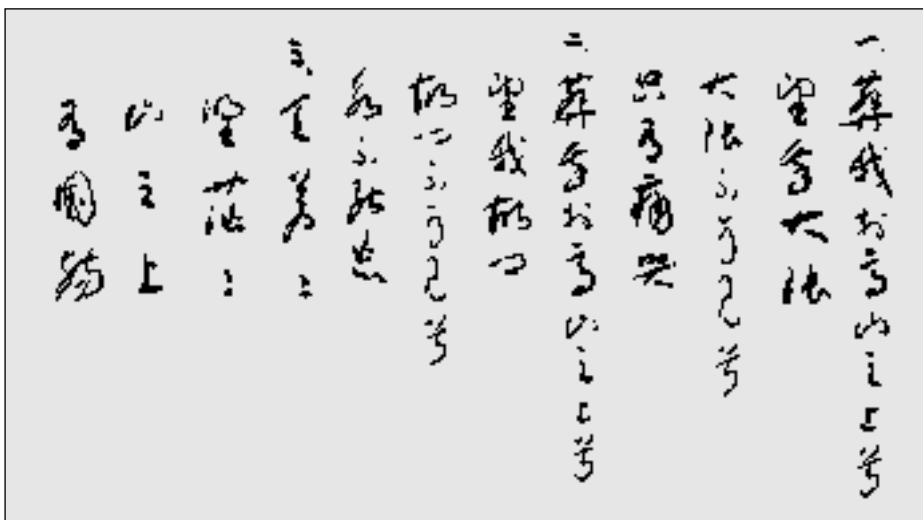 一、葬我於高山之上兮
望我大陸
大陸不可見兮
只有痛哭
二、葬我於高山之上兮
望我故鄉
故鄉不可見兮
永不能忘
三、天蒼々
野茫々
山之上
有國殤